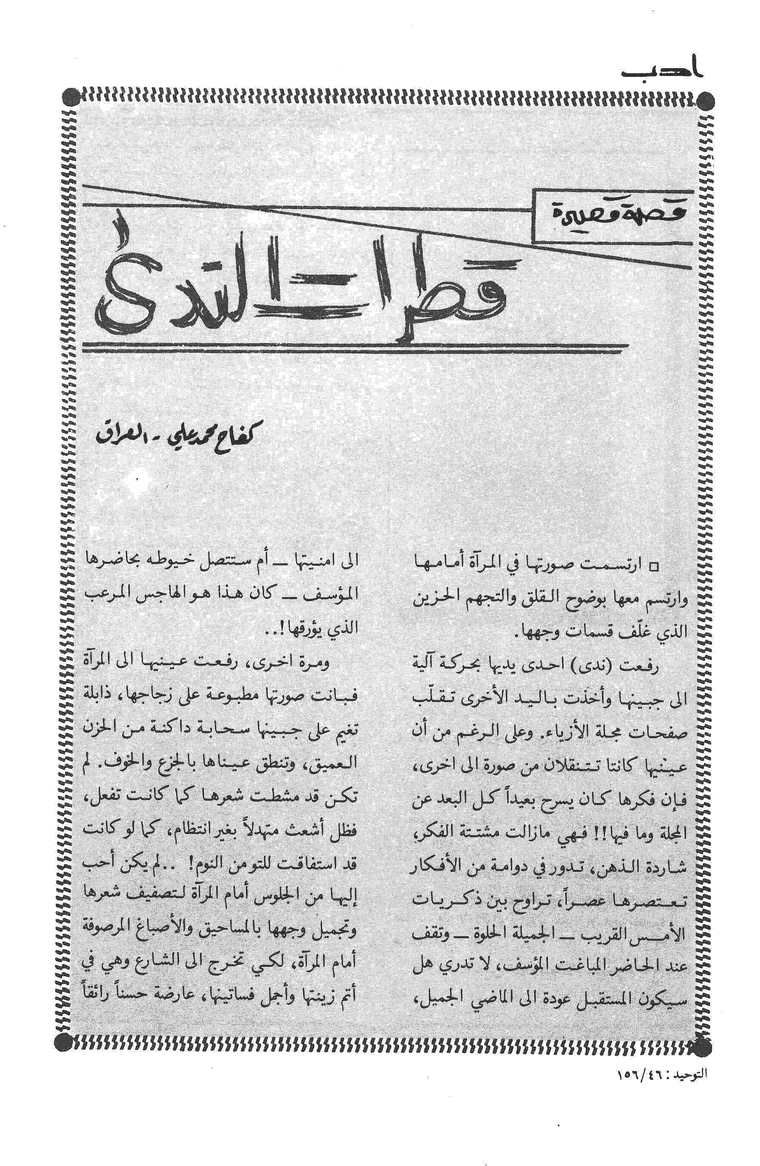 ادب
قصة قصيرة
قطرات الندى
كفاح محمد علي - العراق
□ ارتسمت صورتها في المرآة أمامها
وارتسم معها بوضوح القلق والتجهم الحزين
الذي غلّف قسمات وجهها.
رفعت (ندى) احدى يديها بحركة آلية
الى جبينها وأخذت باليد الأخرى تقلّب
صفحات مجلة الأزياء. وعلى الرغم من أن
عينيها كانتا تتنقلان من صورة الى اخرى،
فإن فكرها كان يسرح بعيداً كل البعد عن
المجلة وما فيها!! فهي مازالت مشتتة الفكر،
شاردة الذهن، تدور في دوامة من الأفكار
تعتصرها عصراً، تراوح بين ذكريات
الأمس القريب — الجميلة الحلوة — وتقف
عند الحاضر المباغت المؤسف، لا تدري هل
سيكون المستقبل عودة الى الماضي الجميل،
الى امنيتها — أم ستتصل خيوطه بحاضرها
المؤسف — كان هذا هو الهاجس المرعب
الذي يؤرقها!..
ومرة اخرى، رفعت عينيها الى المرآة
فبانت صورتها مطبوعة على زجاجها، ذابلة
تغيم على جبينها سحابة داكنة من الحزن
العميق، وتنطق عيناها بالجزع والخوف. لم
تكن قد مشطت شعرها كما كانت تفعل،
فظل أشعث متهدلاً بغير انتظام، كما لو كانت
قد استفاقت للتو من النوم! ..لم يكن أحب
إليها من الجلوس أمام المرآة لتصفيف شعرها
وتجميل وجهها بالمساحيق والأصباغ المرصوفة
أمام المرآة، لكي تخرج الى الشارع وهي في
أتم زينتها وأجمل فساتينها، عارضة حسناً رائقاً
التوحيد: ٤٦/١٥٦